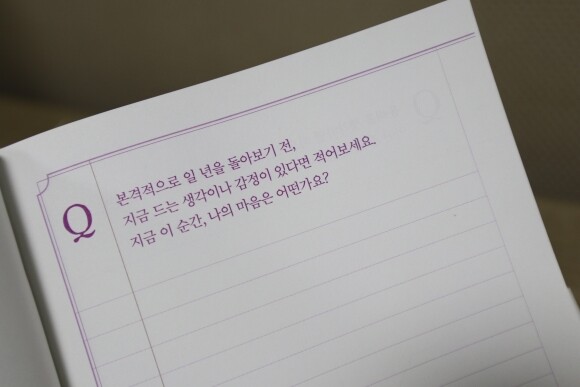 Q
본격적으로 일 년을 돌아보기 전,
지금 드는 생각이나 감정이 있다면 적어보세요.
지금 이 순간, 나의 마음은 어떤가요?